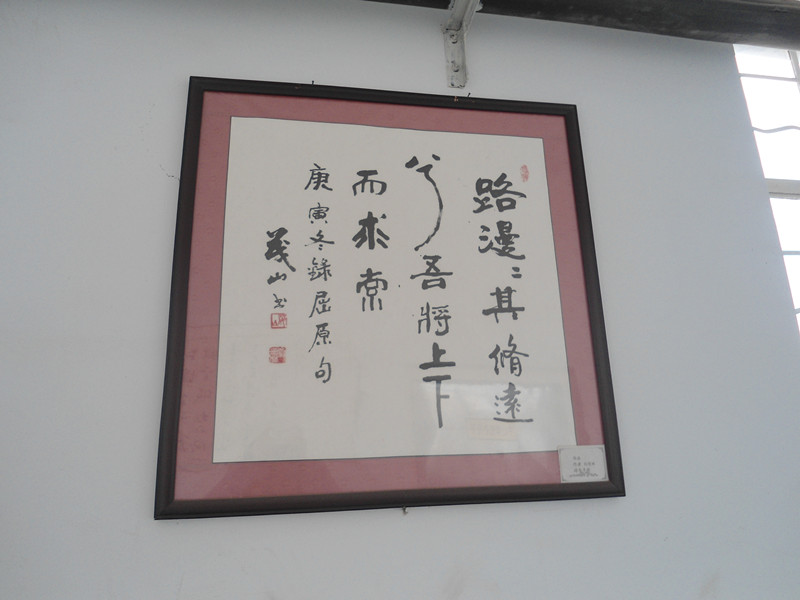 路漫〻其脩遠
兮吾將上下
而求索
庚寅冬錄屈原句
茂山书